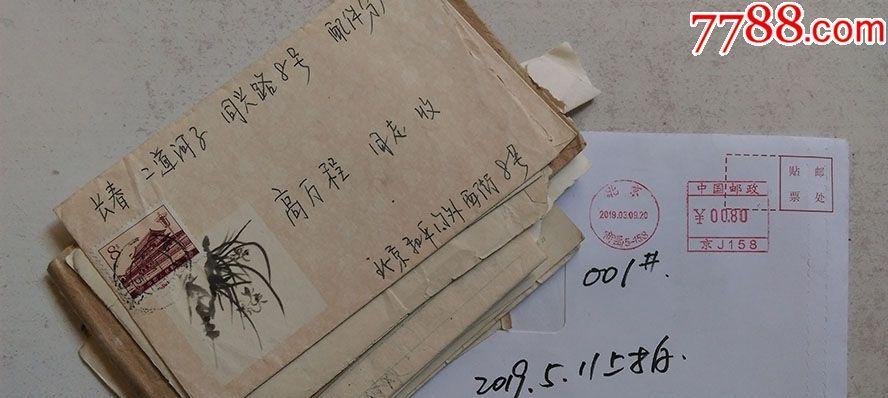 7788.com
长春 二道河子 同兴路8号 配件分
高万程 同志 收
北京和平
西街8号
8分
北京
2019.03.09.20
中国邮政
¥0080
京J158
贴 邮
票 处
001#.
2019.5.11